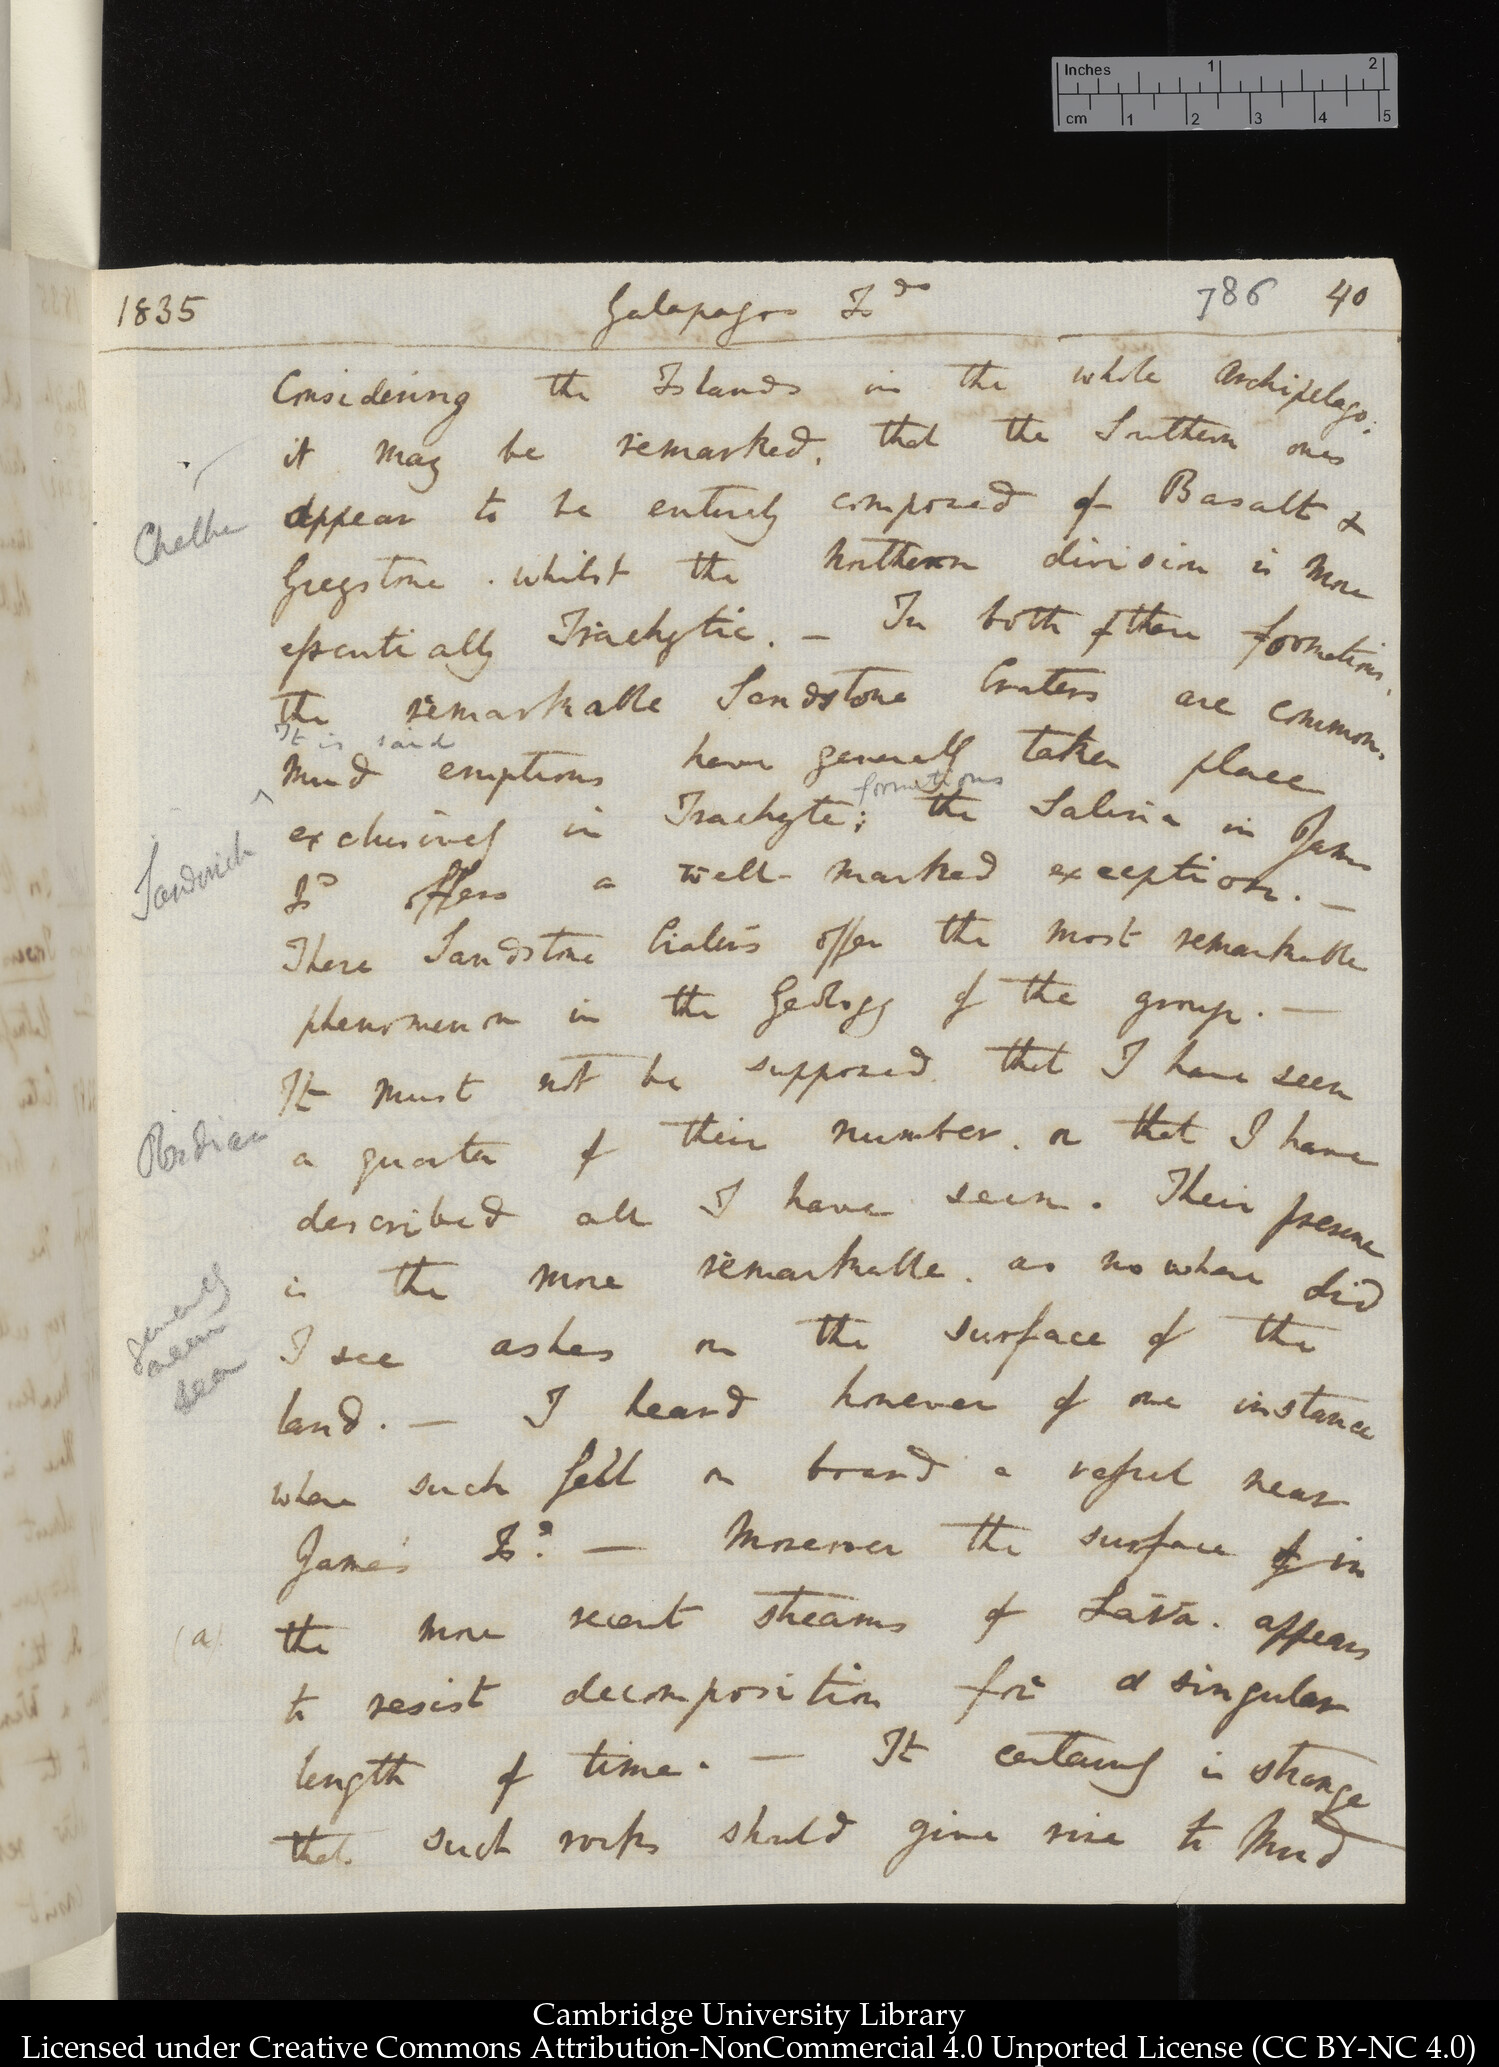 Inches 1 2
cm 1 2 3 4 5
1835 Galapagos Isds 786 40
Considering the Islands in the whole Archipelago;
it may be remarked, that the Southern ones
appear to be entirely composed of Basalt &
Chatham
Greystone. whilst the Northern division is more
essentially Trachytic. — In both of these formations,
the remarkable Sandstone Craters are common.
It is said
Mud eruptions have generally taken place
formations
exclusively in Trachyte; the Salina in James
Sandwich
Isd offers a well-marked exception. —
These Sandstone Craters offer the most remarkable
phenomenon in the Geology of the group. —
It must not be supposed that I have seen
Obsidian
a quarter of their number, or that I have
described all I have seen. Their presence
is the more remarkable, as no where did
generally
near
sea
I see ashes on the surface of the
land. — I heard however of one instance
where such fell on board a vessel near
James Isd. — Moreover the surface of in
(a)
the more recent streams of Lava. appears
to resist decomposition for a singular
length of time. — It certainly is strange
that such rocks should give rise to Mud
Cambridge University Library
Licensed under Creative Commons Attribution-NonCommercial 4.0 Unported License (CC BY-NC 4.0)